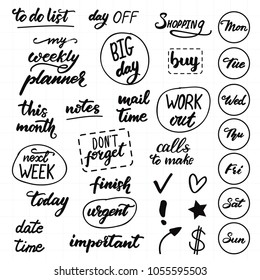 to do list
day OFF
SHOPPING
Mon
my
weekly
planner
BIG
day
buy
Tue
this
month
notes
mail
time
WORK
out
Wed
DON'T
forget
calls
to make
Thu
next
WEEK
finish
Fri
today
urgent
Sat
date
time
important
$
Sun
shutterstock.com · 1055595503